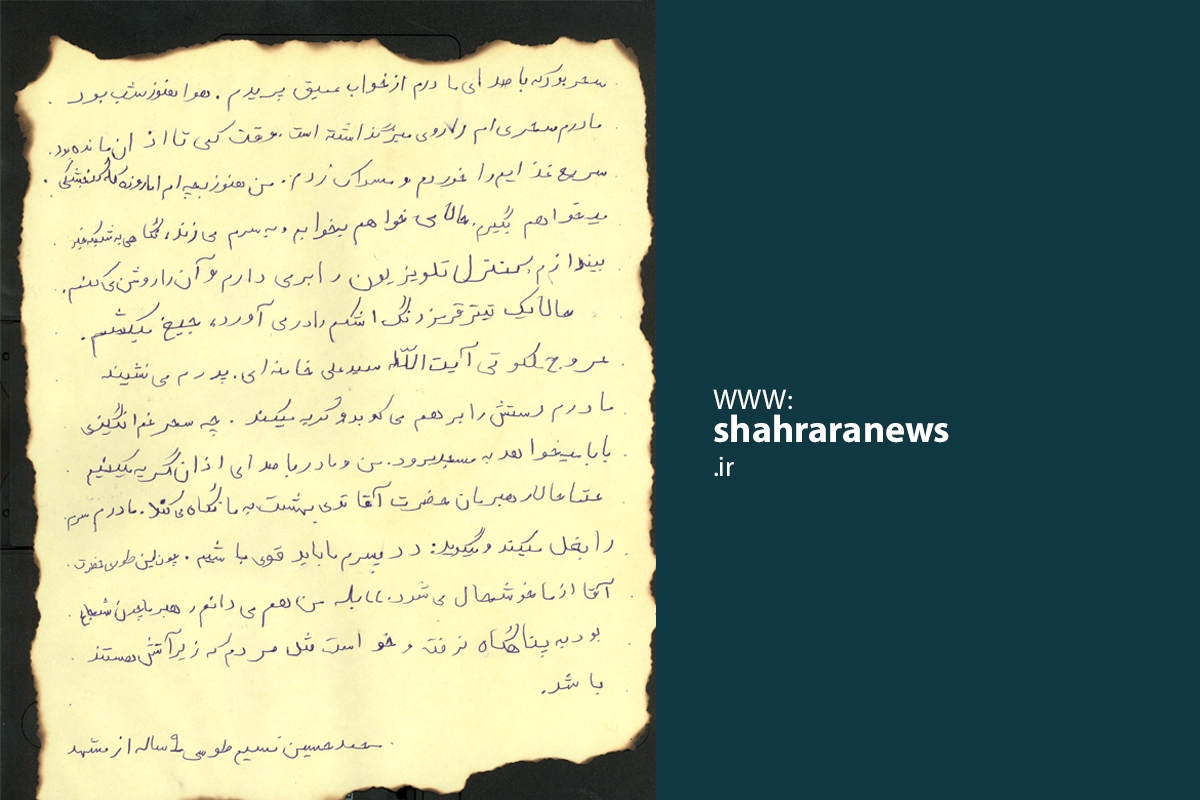 سحر بود که با صدای مادرم از خواب عمیق پریدم. هوا هنوز شب بود
مادرم سحری ام را روی میز گذاشته است. وقت کمی تا اذان مانده بود.
سریع غذایم را خوردم و مسواک زدم. من هنوز بچه ام اما روزه کله گنجشکی
میخواهم بگیرم. حالا می خواهم بخوابم و به سرم می زند، نگاهی به شبکه خبر
بیندازم کنترل تلویزیون را بر می دارم و آن را روشن می کنم.
حالا یک تیتر قرمز رنگ اشکم را در می آورد، جیغ میکشم.
عروج ملکوتی آیت الله سید علی خامنه ای. پدرم می نشیند
مادرم دستش را بر هم می کوبد و گریه میکند. چه سحر غم انگیزی
بابا میخواهد به مسجد برود. من و مادر با صدای اذان گریه میکنیم
حتما حالا رهبرمان حضرت آقا توی بهشت به ما نگاه می کند. مادرم سرم
را بغل میکند و میگوید: پسرم ما باید قوی باشیم. چون این طوری حضرت
آقا از ما خوشحال می شود. بله من هم می دانم، رهبر ما چون شجاع
بود به پناهگاه نرفت و خواست مثل مردم که زیر آتش هستند
باشد.
محمدحسین نسیم طوسی ۹ ساله از مشهد
WWW:
shahraranews
.ir